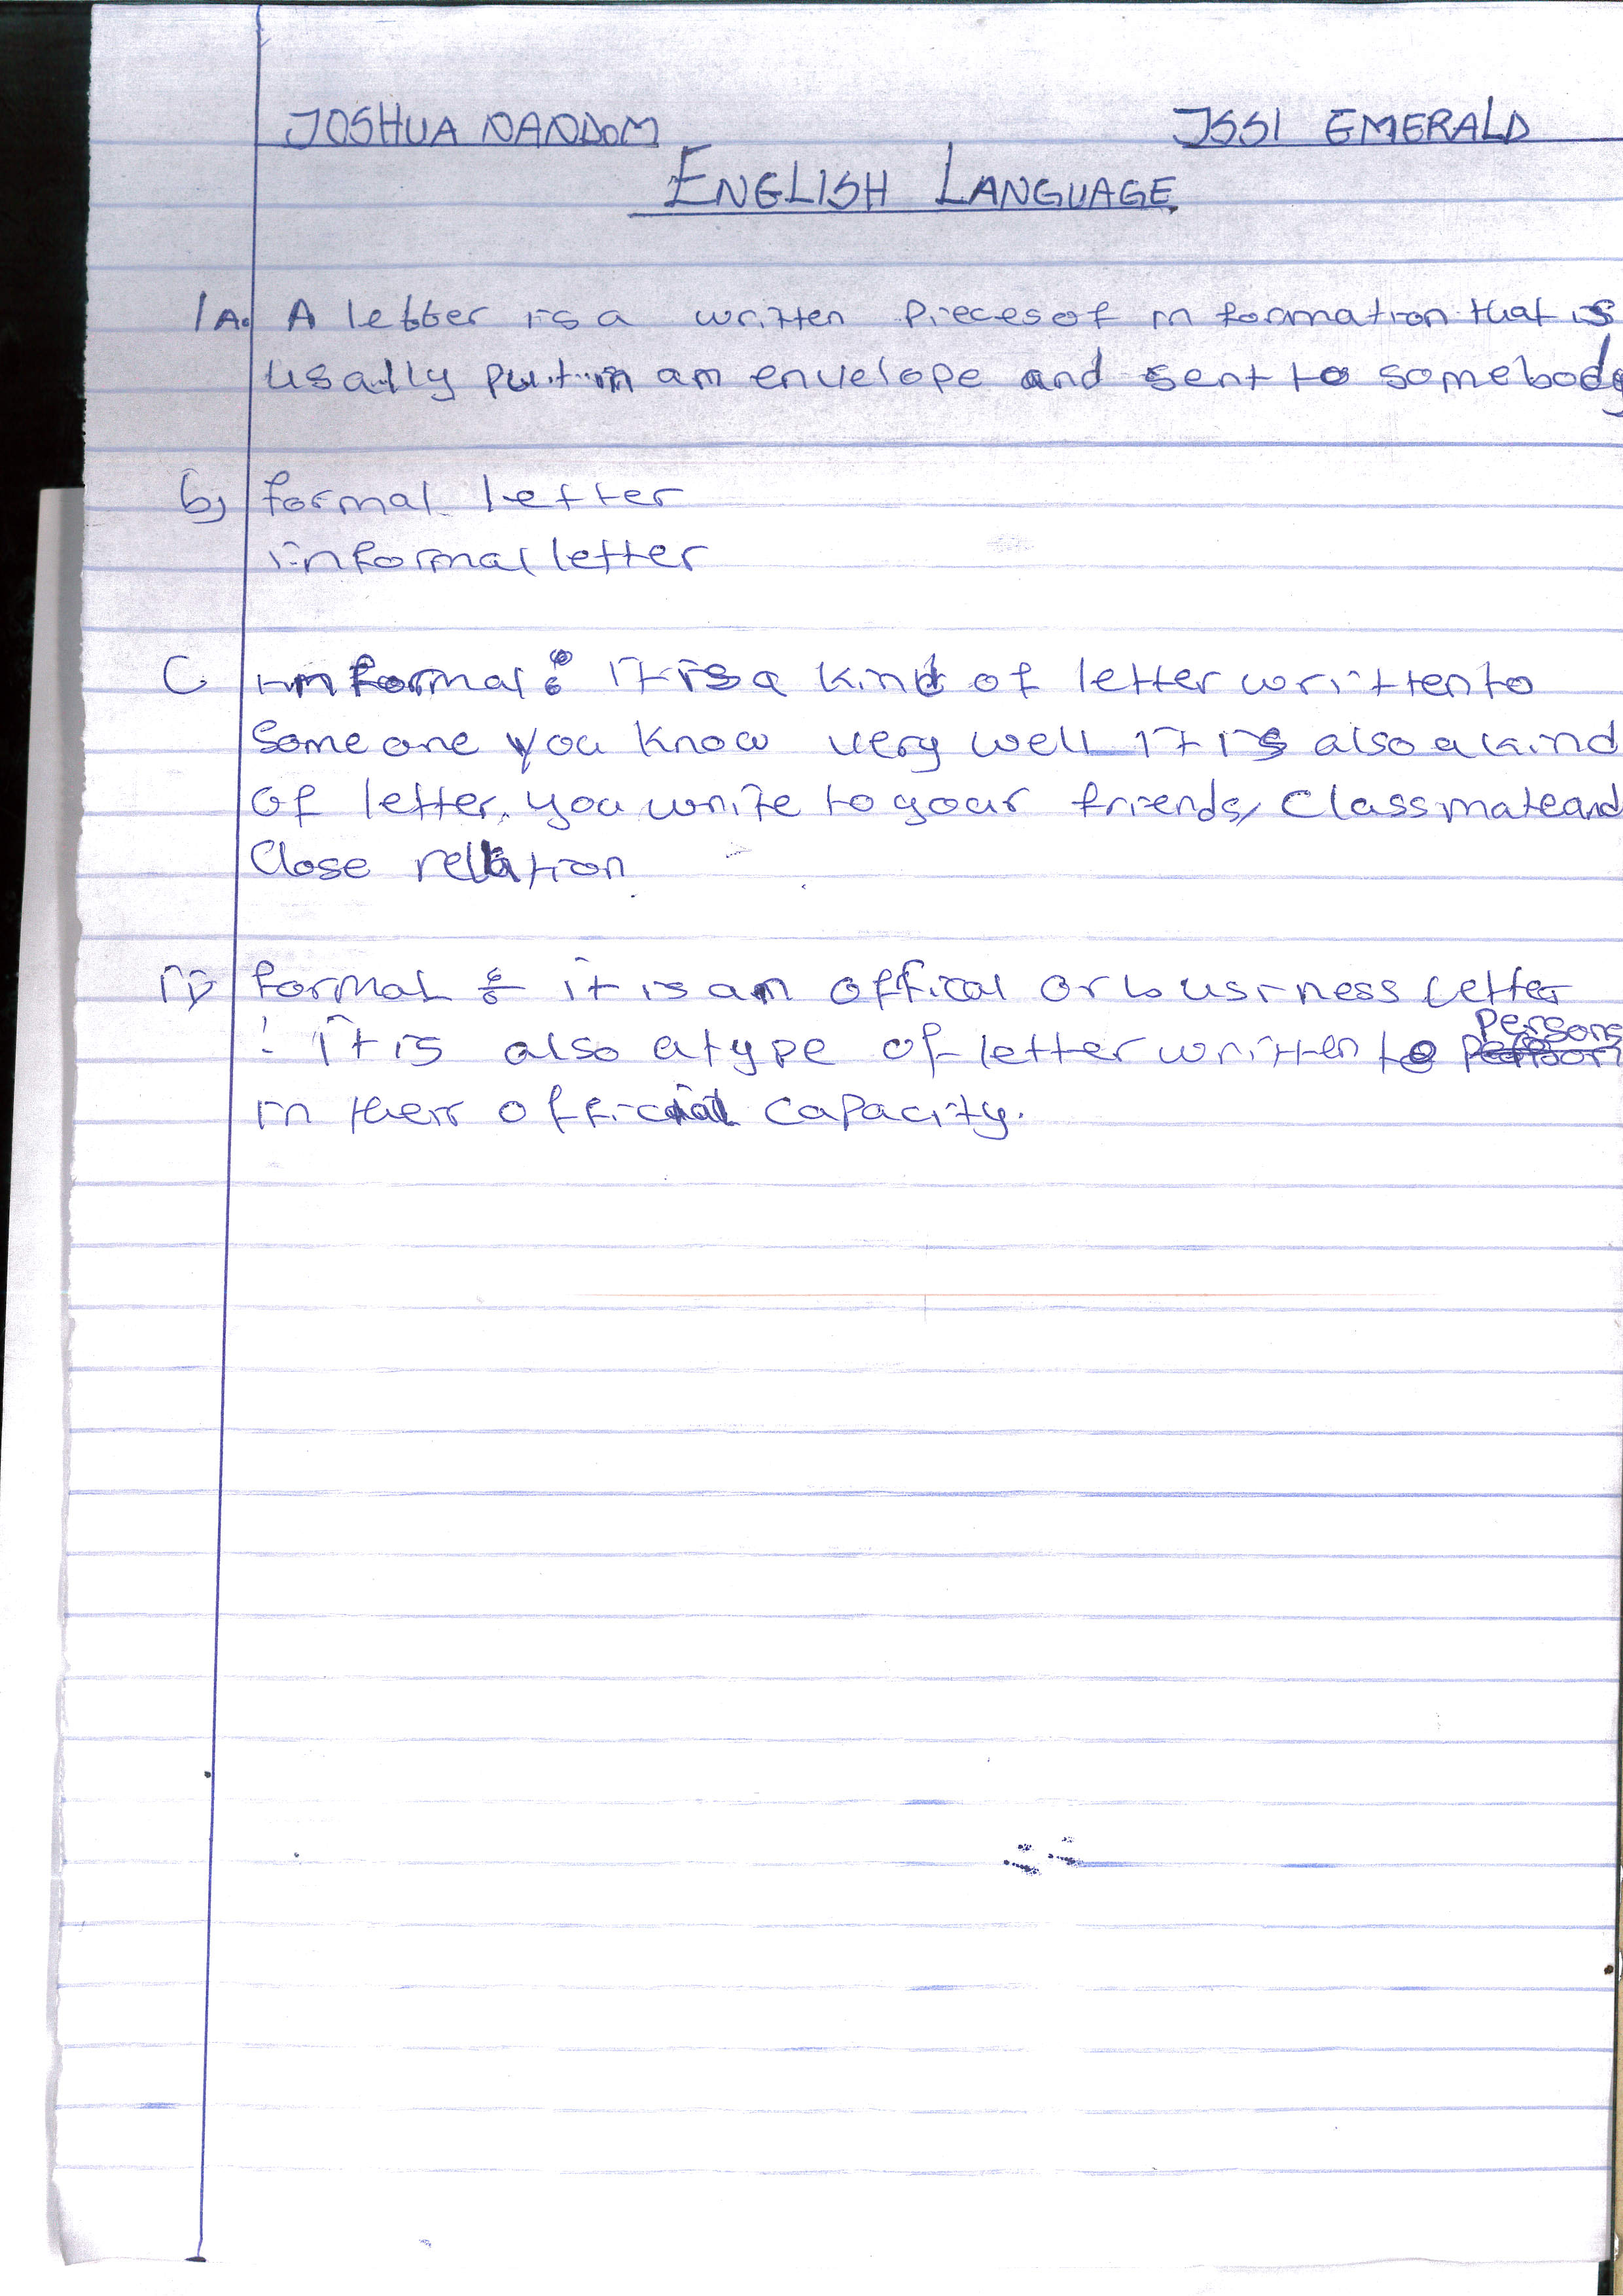 JOSHUA NANDOM JSS1 EMERALD
ENGLISH LANGUAGE
1A. A letter is a written pieces of information that is
usally put in an envelope and sent to somebody
b) formal letter
informal letter
C informal: it is a kind of letter written to
Someone you know very well it is also a kind
of letter. you write to your friends, Classmate and
Close relation
ii) formal : it is an offical or business letter
: it is also a type of letter written to persons
in their official capacity.